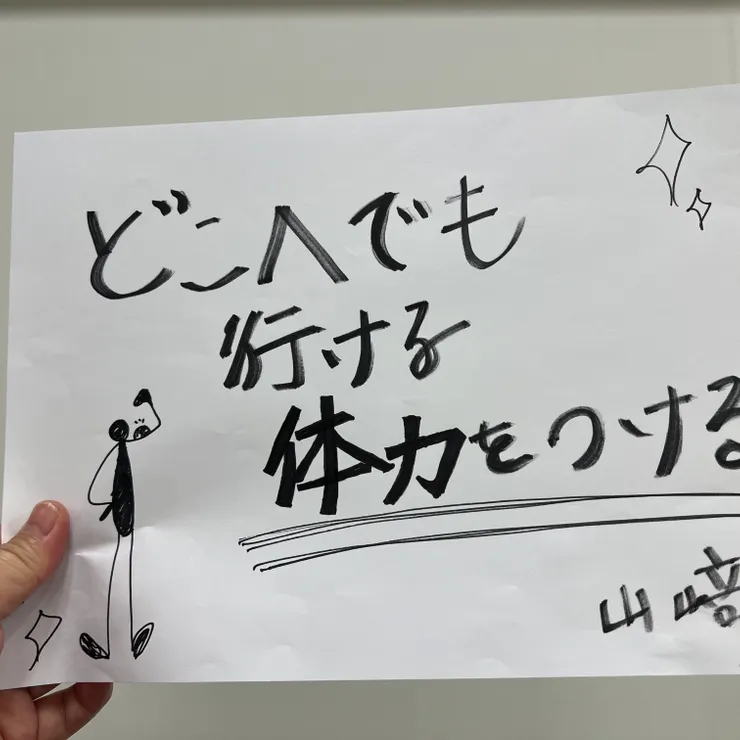 どこへでも
行ける
体力をつける
山﨑